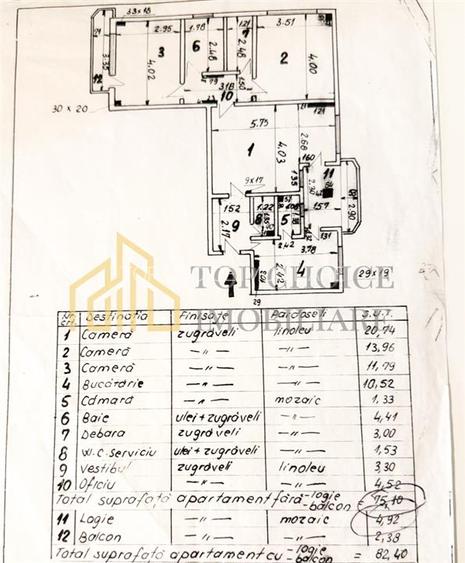 33x18
2.95
1.78
1.21
3.51
3
6
7
2
3.38
4.02
2.48
2.48
4.00
12
318
150
10
30 x 20
121
5.73
2.68
1
4.03
9x17
160
11
2.90
135
152
1.22
157
2.90
9
8
5
2.17
2.42
3.78
131
4
2.42
29x19
29
TOP CHOICE
IMOBILIARE
Nr. crt. Destinația Finisaje Pardoseli S.U.T.
1 Cameră zugrăveli linoleu 20,74
2 Cameră -"- -"- 13,96
3 Cameră -"- -"- 11,79
4 Bucătărie -"- -"- 10,52
5 Cămară -"- mozaic 1,33
6 Baie ulei+zugrăveli -"- 4,41
7 Debara zugrăveli -"- 3,00
8 W.C. serviciu ulei+zugrăveli -"- 1,53
9 Vestibul zugrăveli linoleu 3,30
10 Oficiu -"- -"- 4,52
Total suprafață apartament fără -logie -balcon = 75,10
11 Logie -"- mozaic 4,92
12 Balcon -"- -"- 2,38
Total suprafață apartament cu -logie -balcon = 82,40